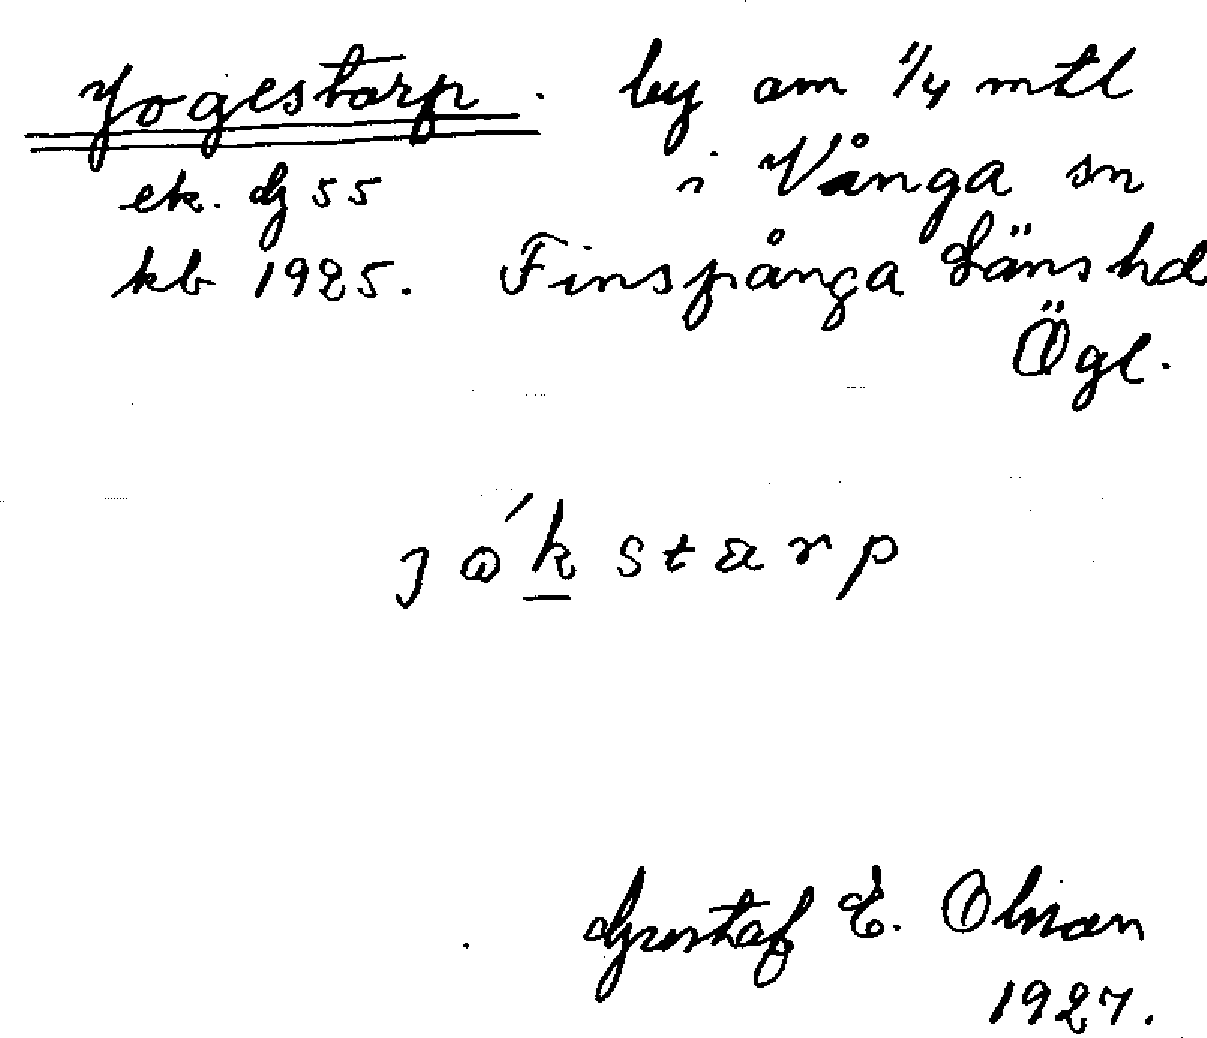 Jogestorp. by om 1/4 mtl
ek. dg 55 i Vånga sn
kb 1925. Finspånga Läns hd
Ögl.
jo´kstarp
Gustaf E. Olson
1927.